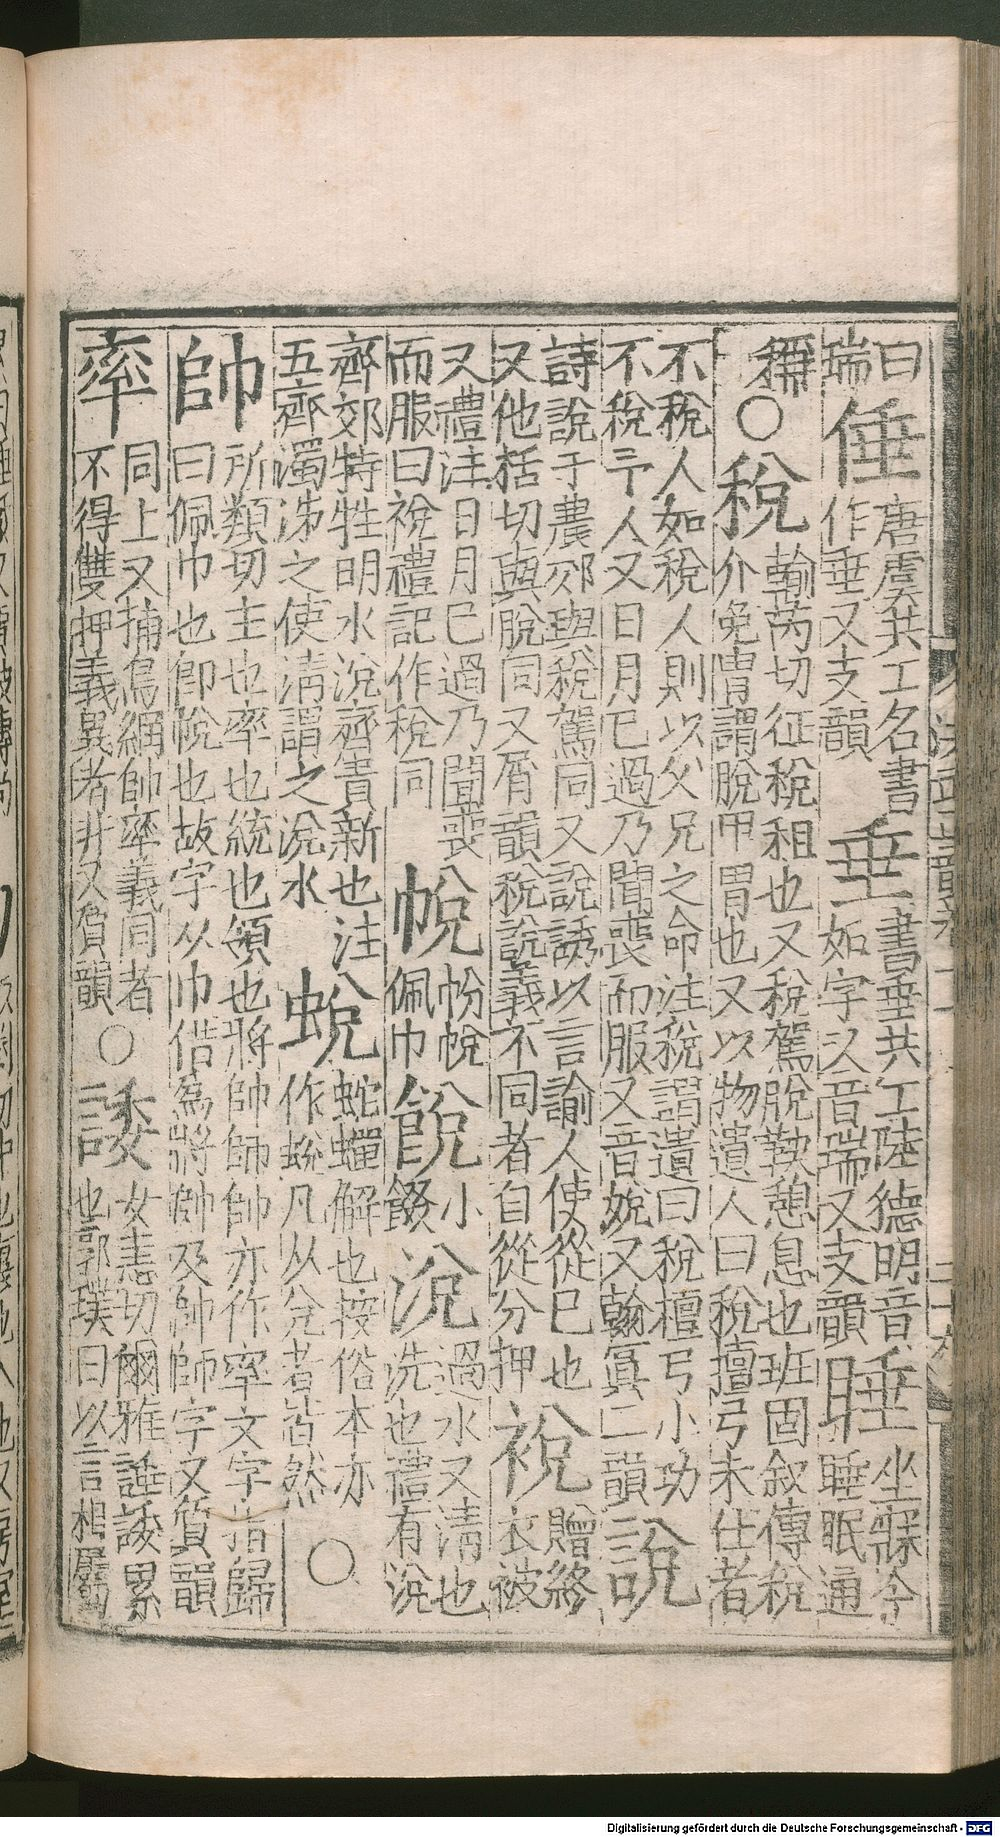 曰
瑞倕唐虞共工名書
作垂又支韻垂書垂共工陸德明音
如字又音瑞又支韻睡坐寐今
睡眠通
稱○稅輸芮切征稅租也又稅駕脫鞅憩息也班固敘傳稅
介免冑謂脫甲冑也又以物遺人曰稅檀弓未仕者
不稅人如稅人則以父兄之命注稅謂遺曰稅檀弓小功
不稅予人又日月已過乃聞喪而服又音娩又翰寘二韻說
詩說于農郊與稅駕同又說誘以言諭人使從已也
又他括切與脫同又屑韻稅說義不同者自從分押裞贈終
衣被
又禮注日月已過乃聞喪
而服曰裞禮記作稅同帨帉帨
佩巾䬽小
餟涗過水又清也
洗也禮有涗
齊郊特牲明水涗齊貴新也注
五齊濁泲之使清謂之涗水蛻蛇蟬解也按俗本亦
作蛻凡从兌者皆然○
帥所類切主也率也統也領也將帥師帥亦作率文字指歸
曰佩巾也卽帨也故字从巾借為將帥及帥師字又質韻
率同上又捕鳥網帥率義同者
不得雙押義異者幷又質韻○諉女恚切爾雅諈諉累
也郭璞曰以言相屬
Digitalisierung gefördert durch die Deutsche Forschungsgemeinschaft - DFG